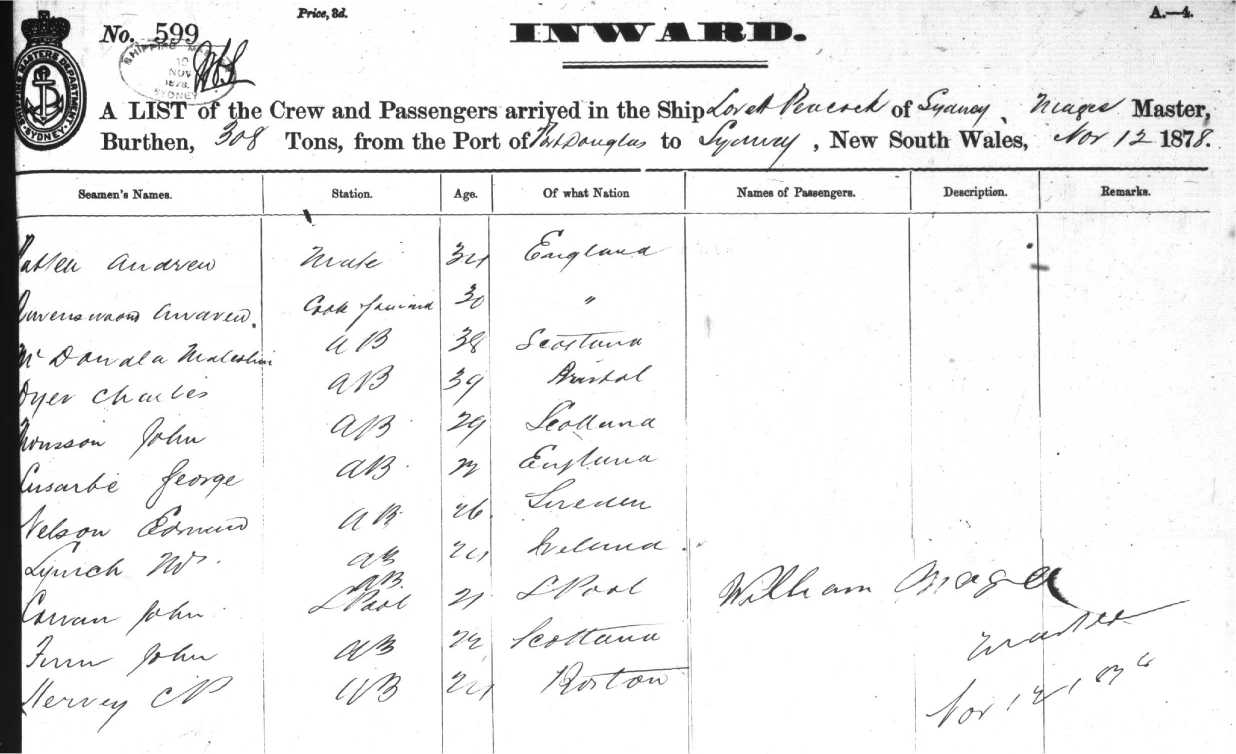 Price, 3d.
A.—4.
No. 599
INWARD.
SHIPPING MASTERS DEPARTMENT SYDNEY
SHIPPING
NOV
1878
SYDNEY
A LIST of the Crew and Passengers arrived in the Ship Lovett Peacock of Sydney, Magee Master,
Burthen, 308 Tons, from the Port of Port Douglas to Sydney, New South Wales, Nov 12 1878.
Seamen's Names. Station. Age. Of what Nation Names of Passengers. Description. Remarks.
Andrew Mate 34 England
Andrew. Cook 30 "
McDonald Malcolm AB 38 Scotland
Dyer Charles AB 39 Bristol
John AB 29 Scotland
George AB England
Nelson Edmund AB 26 Sweden
Lynch Wm. AB 24 Ireland.
John AB LPool 21 LPool
John AB 22 Scotland
Hervey AB 24 Boston
William Magee
Master
Nov 12